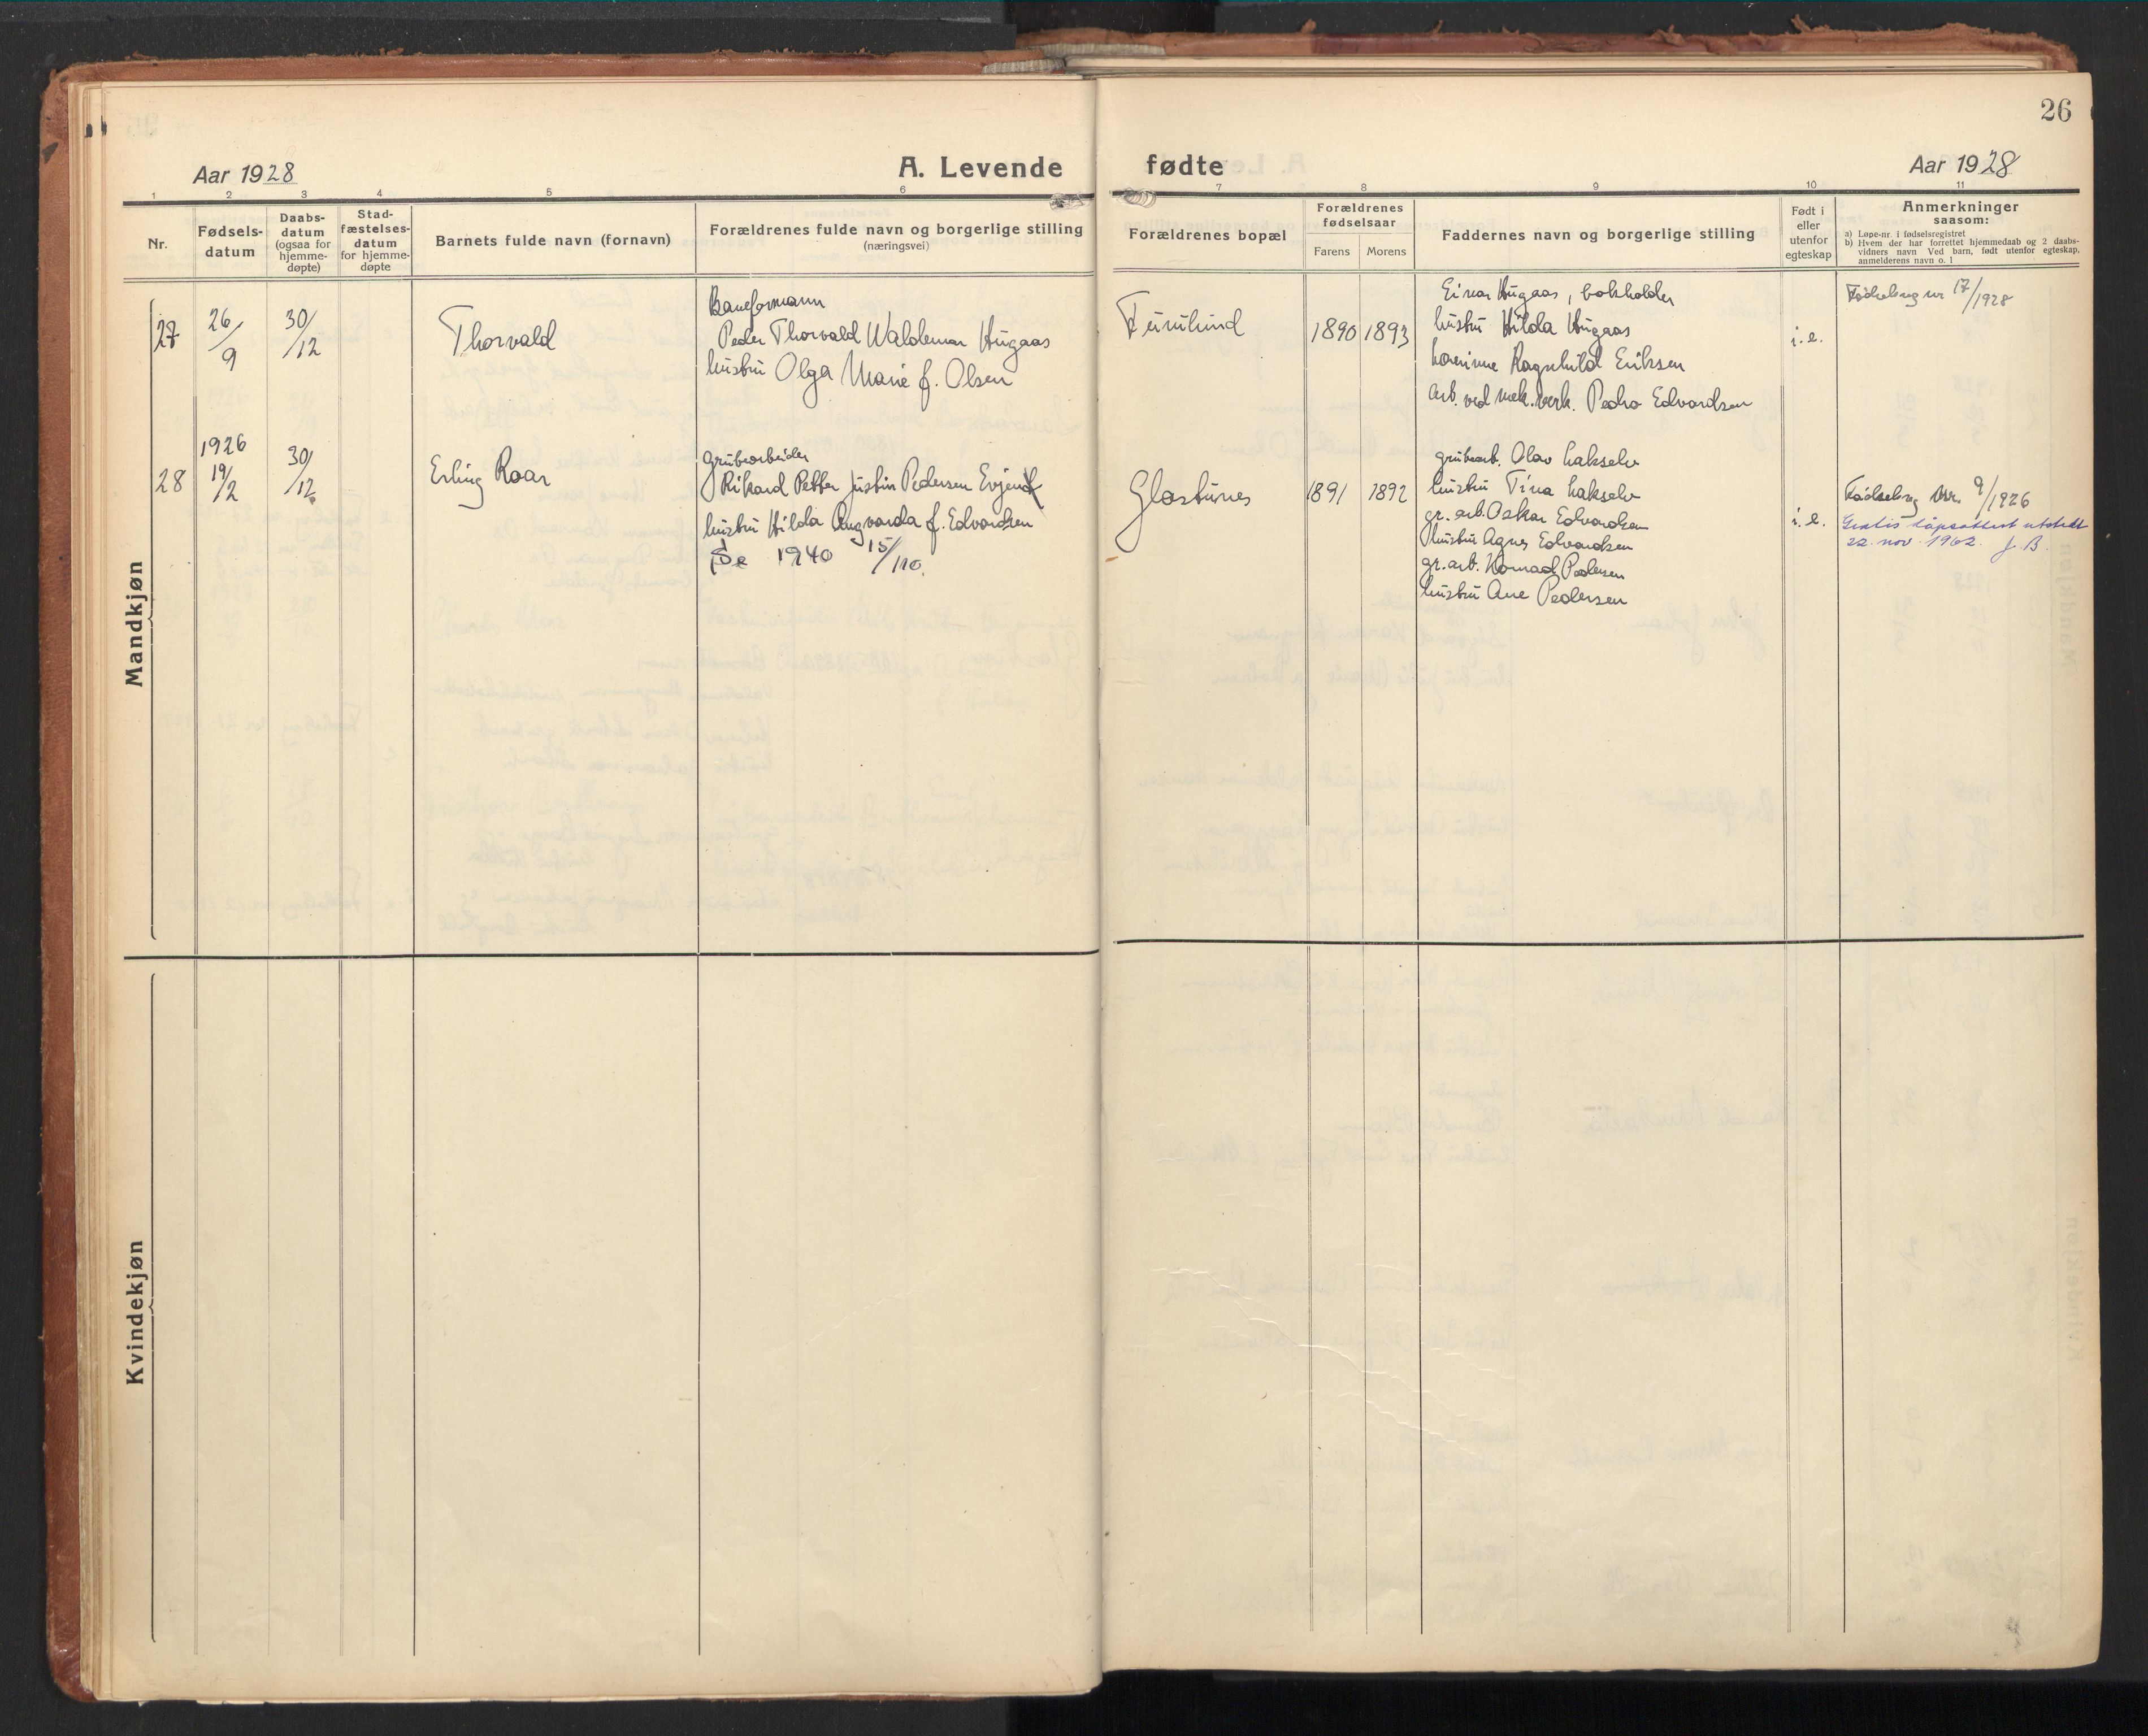 26
Aar 1928
A. Levende
fødte
Aar 1928
1 2 3 4 5 6 7 8 9 10 11
Nr.
Fødsels-
datum
Daabs-
datum
(ogsaa for
hjemme-
døpte)
Stad-
fæstelses-
datum
for hjemme-
døpte
Barnets fulde navn (fornavn)
Forældrenes fulde navn og borgerlige stilling
(næringsvei)
Forældrenes bopæl
Forældrenes
fødselsaar
Farens Morens
Faddernes navn og borgerlige stilling
Født i
eller
utenfor
egteskap
Anmerkninger
saasom:
a) Løpe-nr. i fødselsregistret
b) Hvem der har forrettet hjemmedaab og 2 daabs-
vidners navn Ved barn, født utenfor egteskap,
anmelderens navn o. l
Mandkjøn
27
26/9
30/12
Thorvald
Baneformann
Peder Thorvald Waldemar Hugaas
hustru Olga Marie f. Olsen
Furulund
1890 1893
Einar Hugaas, bokholder
hustru Hilda Hugaas
Ragnhild Eriksen
arb. ved mek. verk. Pedro Edvardsen
i. e.
Fødselsreg nr 17/1928
28
1926
19/2
30/12
Erling Roar
Grubearbeider
Rikard Petter Justin Pedersen Evjent
hustru Hilda Angvarda f. Edvardsen
Se 1940 15/110.
Glastunes
1891 1892
grubearb. Olav Lakselv
hustru Tina Lakselv
gr. arb. Oskar Edvardsen
hustru Agnes Edvardsen
gr. arb. Konrad Pedersen
hustru Ane Pedersen
i. e.
Fødselsreg nr. 9/1926
Gratis dåpsattest utstedt
22. nov. 1962. J. B.
Kvindekjøn